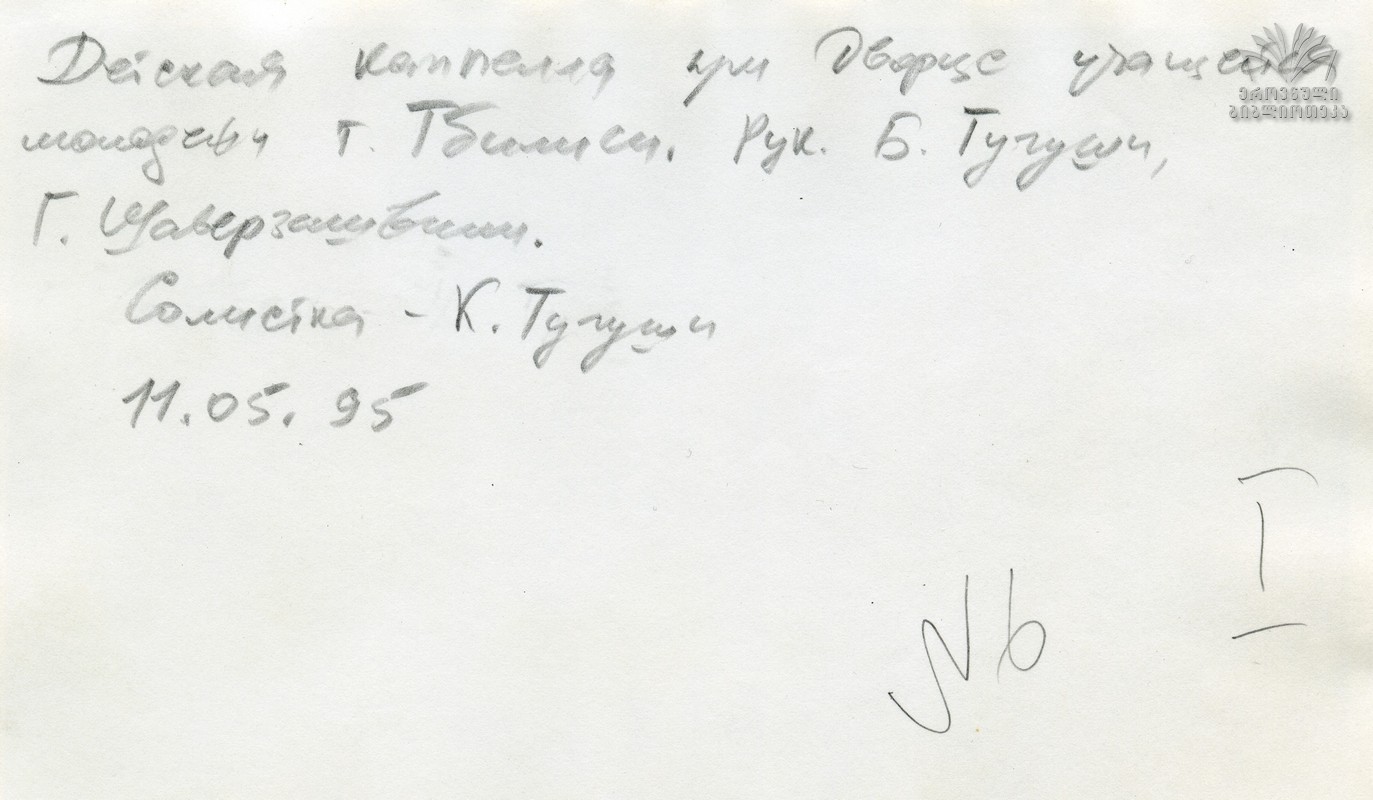 Детская каппелла при Дворце учащейся
молодежи г. Тбилиси. Рук. Б. Тугуши,
Г. Шаверзашвили.
Солистка - К. Тугуши
11.05.95
N 6
I
ეროვნული
ბიბლიოთეკა